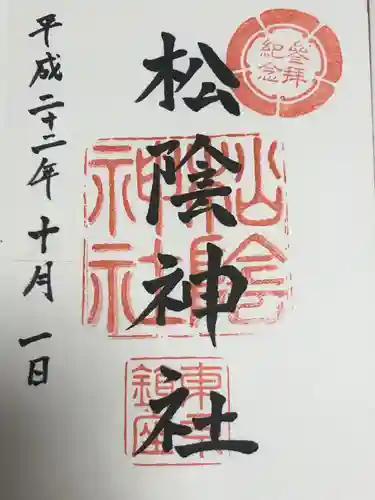 參拜紀念
松陰神社
松陰神社
東京鎮座
平成二十二年十月一日